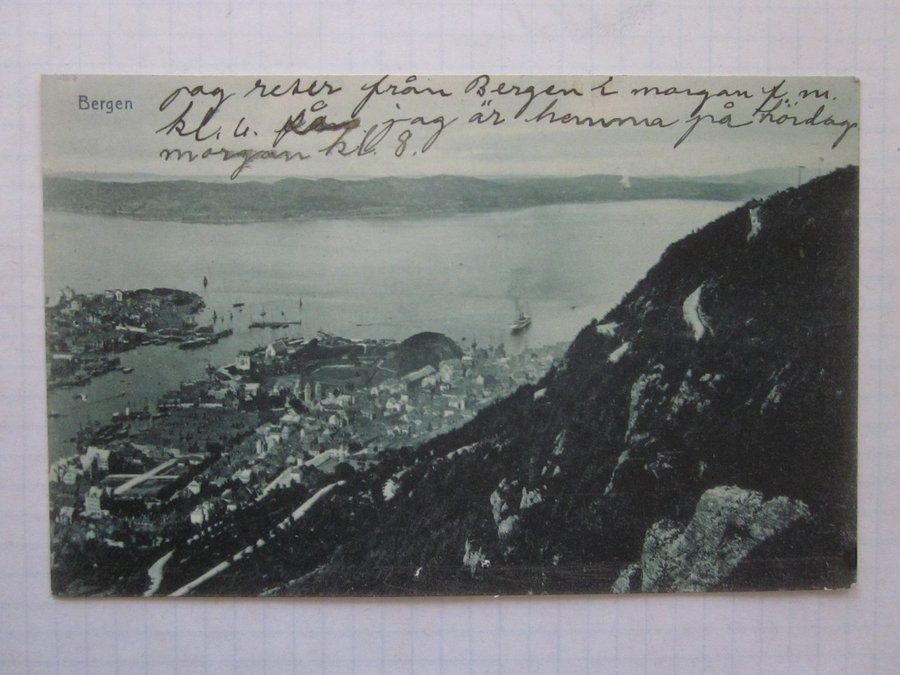 Bergen
jag reser från Bergen i morgan f. m.
kl. 4. jag är hemma på Lördag
morgan kl. 8.